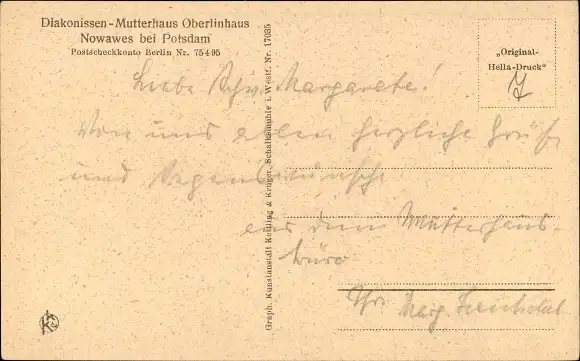 Diakonissen-Mutterhaus Oberlinhaus
Nowawes bei Potsdam
Postscheckkonto Berlin Nr. 75495
„Original-
Hella-Druck"
Graph. Kunstanstalt Kettling & Krüger, Schalksmühle i. Westf. Nr. 17035
Liebe Schw. Margarete!
Von uns allen herzliche Grüße
und Segenswünsche
aus dem Mutterhaus-
büro
Ihr. Marg.